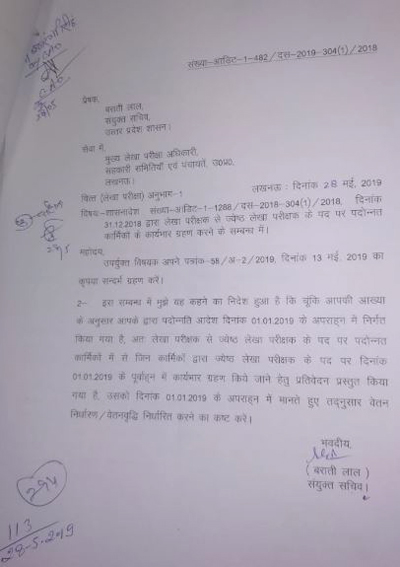 संख्या-आडिट-1-482/दस-2019-304(1)/2018
प्रेषक,
बराती लाल,
संयुक्त सचिव,
उत्तर प्रदेश शासन।
सेवा में,
मुख्य लेखा परीक्षा अधिकारी,
सहकारी समितियाँ एवं पंचायतें, उ०प्र०,
लखनऊ।
वित्त (लेखा परीक्षा) अनुभाग-1 लखनऊ: दिनांक 28 मई, 2019
विषय-शासनादेश संख्या-आडिट-1-1288/दस-2018-304(1)/2018, दिनांक
31.12.2018 द्वारा लेखा परीक्षक से ज्येष्ठ लेखा परीक्षक के पद पर पदोन्नत
कार्मिकों के कार्यभार ग्रहण करने के सम्बन्ध में।
महोदय,
उपर्युक्त विषयक अपने पत्रांक-58/अ-2/2019, दिनांक 13 मई, 2019 का
कृपया सन्दर्भ ग्रहण करें।
2- इस सम्बन्ध में मुझे यह कहने का निदेश हुआ है कि चूंकि आपकी आख्या
के अनुसार आपके द्वारा पदोन्नति आदेश दिनांक 01.01.2019 के अपराहन में निर्गत
किया गया है, अतः लेखा परीक्षक से ज्येष्ठ लेखा परीक्षक के पद पर पदोन्नत
कार्मिकों में से जिन कार्मिकों द्वारा ज्येष्ठ लेखा परीक्षक के पद पर दिनांक
01.01.2019 के पूर्वाहन में कार्यभार ग्रहण किये जाने हेतु प्रतिवेदन प्रस्तुत किया
गया है, उसको दिनांक 01.01.2019 के अपराहन में मानते हुए तद्नुसार वेतन
निर्धारण/वेतनवृद्धि निर्धारित करने का कष्ट करें।
भवदीय,
(बराती लाल)
संयुक्त सचिव।
113
28-5-2019